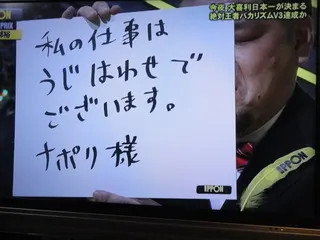 今夜 大喜利日本一が決まる
絶対王者バカリズムV3達成か
IPPON
私の仕事は
うじはわせで
ございます。
ナポリ様
IPPON